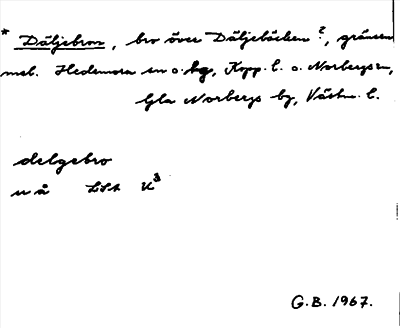 * Däljebron, bro över Däljebäcken ?, gränsen
mel. Hedemora sn o. bg, Kopp. l. o. Norbergs sn,
Gla Norbergs bg, Västm. l.
delgebro
u å LSA U³
G.B. 1967.